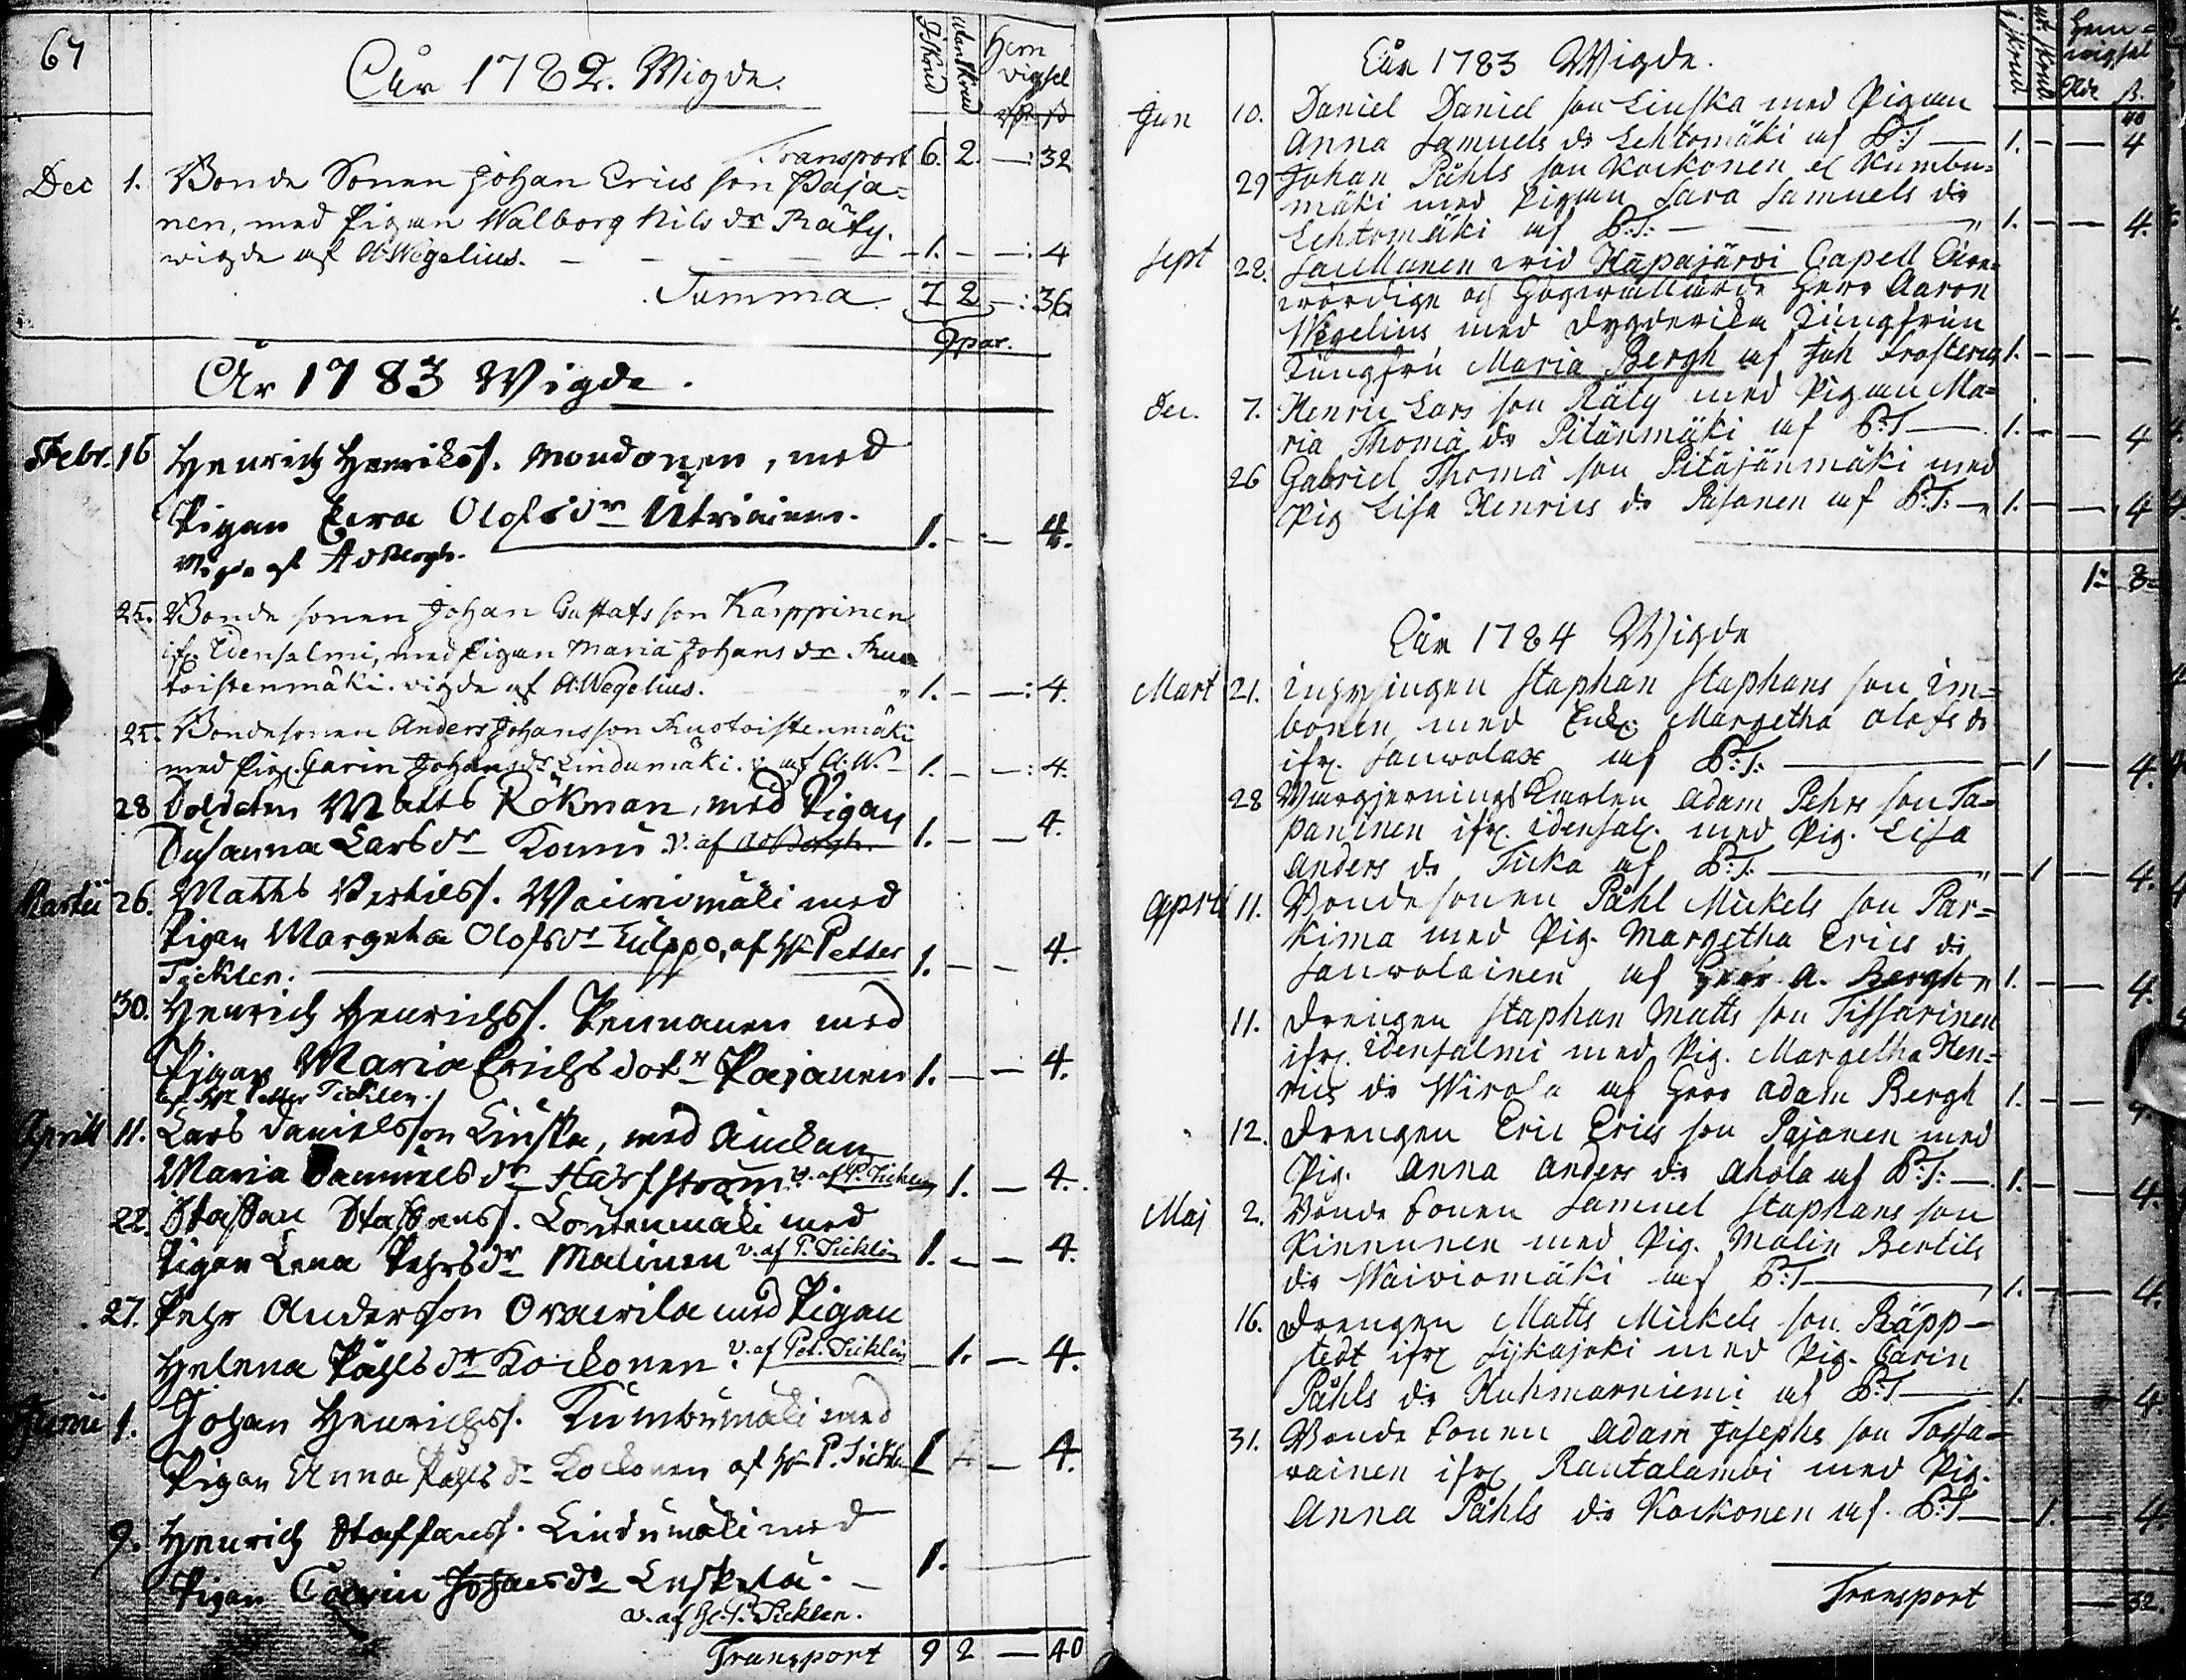 67
År 1782. Wigde.
I skrud utan skrud Hem vigsel
Transport 6. 2. —: 32
Dec 1. Bonde Sonen Johan Erics son Paja=
nen, med Pigan Walborg Nils dr Räty.
wigde af A: Wegelius. — — — — 1. — —: 4
Summa 7 2 —: 36
9 par.
År 1783 Wigde.
Febr. 16 Henrich Henrikss. Mondonen, med
Pigan Ewa Olofs dr Utriainen.
Wigde af Ad Bergh. 1. — — 4.
25. Bonde sonen Johan Gustafs son Karppinen
ifr. Idensalmi, med Pigan Maria Johans dr Kuo
toistenmäki. vigde af A: Wegelius. 1. — —: 4.
25. Bondesonen Anders Johansson Kuotoistenmäki
med Pig. Carin Johans dr Lindumäki. v. af A: W. 1. — —: 4.
28 Soldaten Matts Rökman, med Pigan
Susanna Lars dr Komu. v. af Ad Bergh. 1. — — 4.
Martii 26. Matts Bertilss. Waiwiomäki med
Pigan Margeta Olofs dr Lulppo, af Hr Petter
Ticklen. 1. — — 4.
30. Henrich Henrichss. Pennanen med
Pigan Maria Erichs dotr Pajanen 1. — — 4.
af Hr Petter Ticklen.
Aprill 11. Lars Danielsson Liuska, med Änckan
Maria Samuels dr Harfström. v. af P. Ticklen 1. — 4.
22. Staffan Staffanss. Koutenmäki med
Pigan Lena Pehrs dr Malinen v. af P. Ticklen 1. — — 4.
27. Pehr Andersson Orawila med Pigan
Helena Påhls dr Kockonen v. af Pet. Ticklen — 1. — 4.
Junii 1. Johan Henrichss. Kumbumäki med
Pigan Anna Påhls dr Kockonen af Hr P. Ticklen 1 — 4.
9. Henrich Staffanss. Lindumäki med
Pigan Carin Johans dr Leskelä. — 1.
v. af Hr P. Ticklen.
Transport 9 2 — 40
År 1783 Wigde.
i skrud ut. skrud Hem= wigsel
Rdr ß.
40
Jun 10. Daniel Daniel son Liuska med Pigan
Anna Samuels dr Lehtomäki af P:T — 1. — — 4
29 Johan Påhls son Kockonen el Kumbu=
mäki med Pigan Sara Samuels dr
Lehtomäki af P:T: — 1. — — 4.
Sept 28. Sacellanen wid Haapajärwi Capell Äre=
wördige och Högwällärde Herr Aaron
Wegelius med dygderika Jungfrun
Jungfru Maria Bergh af Joh Frosterus 1. — — —
Dec. 7. Henric Lars son Räty med Pigan Ma=
ria Thomä dr Pitänmäki af P:T — 1. — — 4
26 Gabriel Thomä son Pitäjänmäki med
Pig Lisa Henrics dr Pasanen af P:T: — 1. — — 4
1 — 8 —
År 1784 Wigde
Mart 21. Inhysingen Staphan Staphans son Im=
bonen med Enk. Margetha Olofs dr
ifr. Sauwolax af P:T: — — 1 — 4.
28 Wargjernings Karlen Adam Pehrs son Ta=
paninen ifr. Idensal. med Pig. Lisa
Anders dr Tuka af P:T. — — 1 — 4.
Apri 11. Bonde sonen Påhl Mickels son Par=
kima med Pig. Margetha Erics dr
Sauwolainen af Herr A. Bergh 1. — — 4.
11. Drengen Staphan Matts son Tissarinen
ifr. Idensalmi med Pig. Margetha Hen=
rics dr Wirola af Herr Adam Bergh 1. — — 4
12. Drengen Eric Erics son Pajanen med
Pig. Anna Anders dr Ahola af P:T: — 1. — — 4.
Maj 2. Bonde sonen Samuel Staphans son
Kinnunen med Pig. Malin Bertils
dr Waiwiomäki af P:T — 1. — — 4.
16. Drengen Matts Mickels son Räpp—
stedt ifr. Sijkajoki med Pig. Carin
Påhls dr Kuhmarniemi af P:T — 1. — 4.
31. Bonde sonen Adam Josephs son Tossa=
wainen ifr. Rautalambi med Pig.
Anna Påhls dr Kockonen af. P:T — — 1. — 4.
Transport — 32.